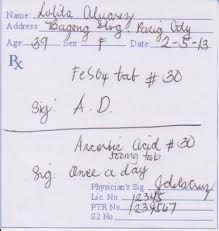 Name: Lolita Alvarez
Address: Bagong Ilog Pasig City
Age: 39 Sex: F Date: 2-5-13
Rx
FeSO4 tab # 30
Sig: A. D.
Ascorbic Acid # 30
500mg tab
Sig: Once a day
Physician's Sig JdelaCruz
Lic No 12345
PTR No 1234567
S2 No